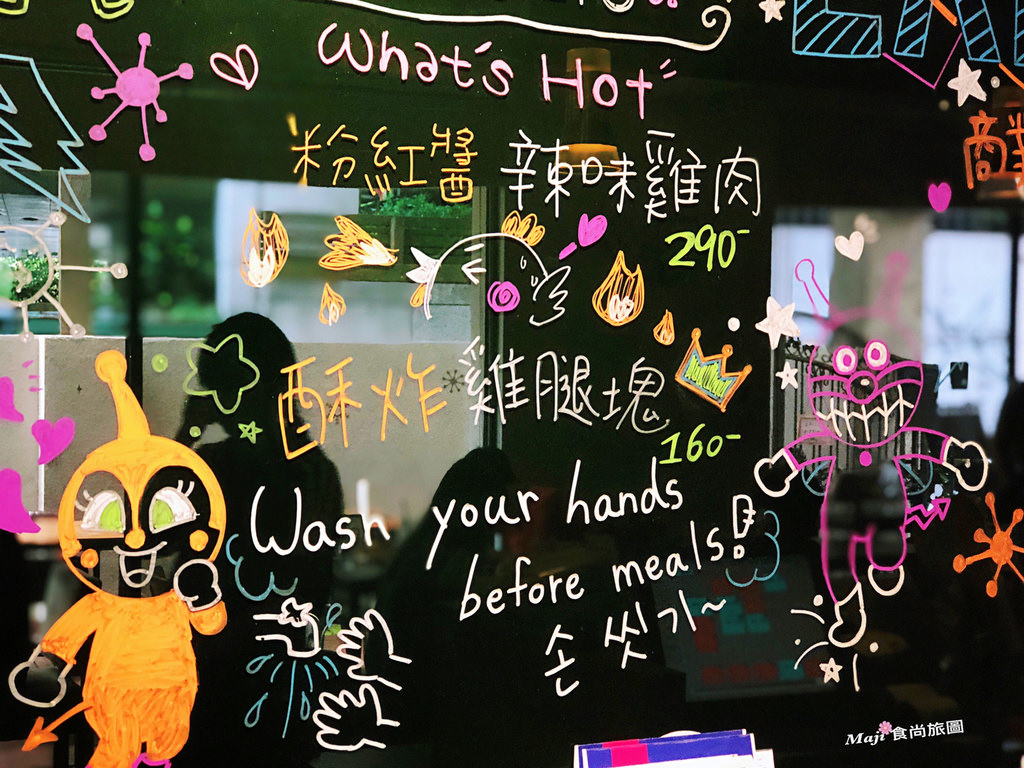 What's Hot
粉紅醬 辣味雞肉
290-
酥炸雞腿塊
160-
Wash your hands
before meals!
손 씻기~
Maji 食尚旅圖